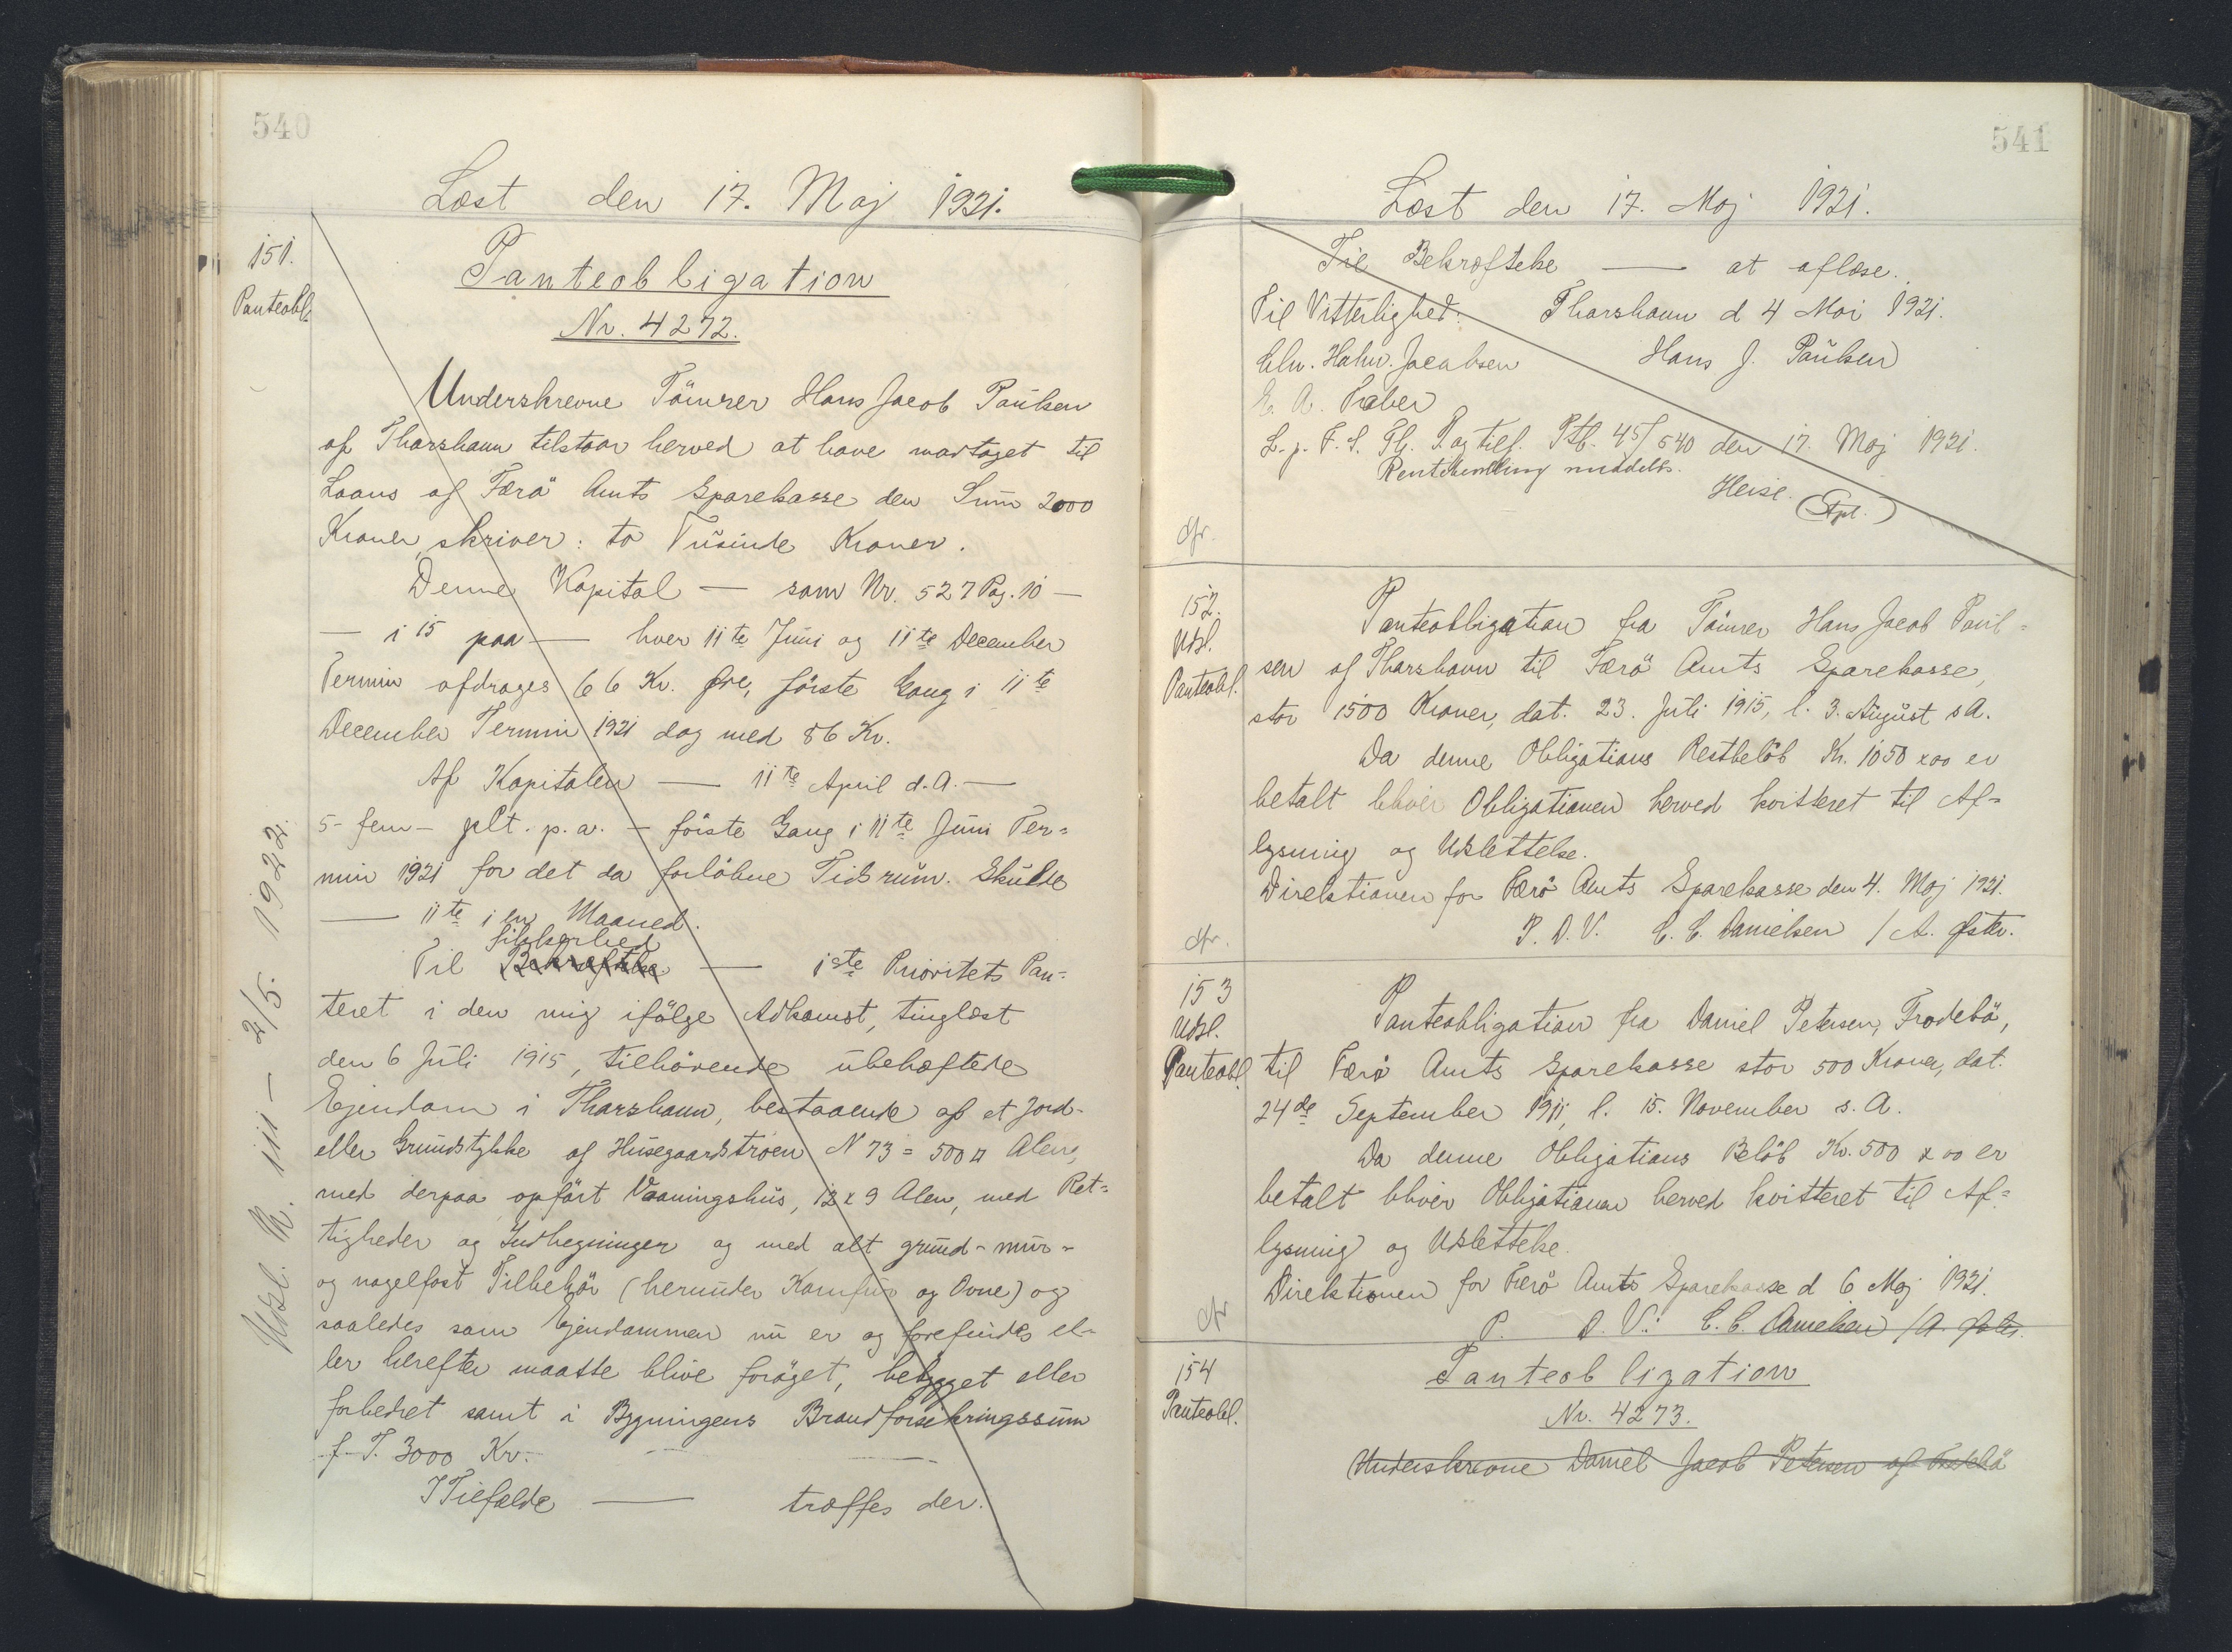 540
Læst den 17. Maj 1921.
151.
Panteobl.
Panteobligation
Nr. 4272.
Underskrevne Tömrer Hans Jacob Paulsen
af Thorshavn tilstaar herved at have modtaget til
Laans af Færö Amts Sparekasse den Sum 2000
Kroner, skriver: to Tusinde Kroner.
Denne Kapital — som Nr. 527 Pag. 10 —
— i 15 paa — hver 11te Juni og 11te December
Termin afdrages 66 Kr. Øre, förste Gang i 11te
December Termin 1921 dog med 86 Kr.
Af Kapitalen — 11te April d. A. —
5 - fem - pCt. p. a. - förste Gang i 11te Juni Ter=
min 1921 for det da forlöbne Tidsrum. Skulde
— 11te i en Maaned.
Sikkerhed
Til Bekræftelse — 1ste Prioritets Pan=
teret i den mig ifölge Adkomst, tinglæst
den 6 Juli 1915, tilhörende ubehæftede
Ejendom i Thorshavn, bestaaende af et Jord-
eller Grundstykke af Husegaardstrøen N 73 = 500 □ Alen,
med derpaa opfört Vaaningshus, 12 x 9 Alen, med Ret=
tigheder og Indhegninger og med alt grund- mur-
og nagelfast Tilbehör (herunder Komfur og Ovne) og
saaledes som Ejendommen nu er og forefindes el=
ler herefter maatte blive foröget, bebygget eller
forbedret samt i Bygningens Brandforsikringssum
f. T. 3000 Kr.
I Tilfælde — træffes der.
Udsl. 111 — 2/5. 1922.
541
Læst den 17. Maj 1921.
Til Bekræftelse — at aflæse.
Til Vitterlighed: Thorshavn d 4 Mai 1921.
Chr. Holm. Jacobsen Hans J. Paulsen
L. p. F. S. Th. P. og tilf. Ptb. 45/540 den 17. Maj 1921.
meddelts.
Heise.
152.
Udsl.
Panteobl.
Panteobligation fra Tömrer Hans Jacob Paul=
sen af Thorshavn til Færö Amts Sparekasse,
stor 1500 Kroner, dat. 23. Juli 1915, l. 3. August s A.
Da denne Obligations Restbelöb Kr. 1050 x 00 er
betalt bliver Obligationen herved kvitteret til Af=
lysning og Udslettelse.
Direktionen for Færö Amts Sparekasse den 4. Maj 1921.
P. D. V. C. C. Danielsen / A. Øster.
153
Udsl.
Panteobl.
Panteobligation fra Daniel Petersen, Frodebö,
til Færö Amts Sparekasse stor 500 Kroner, dat.
24de September 1911, l. 15. November s. A.
Da denne Obligations Belöb Kr. 500 x 00 er
betalt bliver Obligationen herved kvitteret til Af=
lysning og Udslettelse.
Direktionen for Færö Amts Sparekasse d 6 Maj 1921.
P. D. V.: C. C. Danielsen / A. Øster.
154
Panteobl.
Panteobligation
Nr. 4273.
Underskrevne Daniel Jacob Petersen af Frodebö